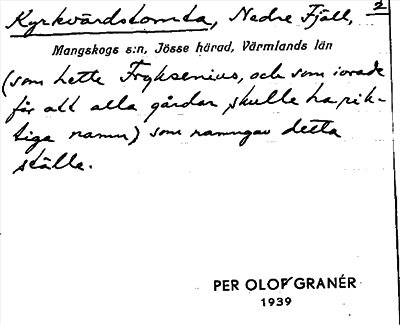 Kyrkvärdstomta, Nedre Fjäll, 2
Mangskogs s:n, Jösse härad, Värmlands län
(som hette Fryksenius, och som ivrade
för att alla gårdar skulle ha rik-
tiga namn) som namngav detta
ställe.
PER OLOF GRANÉR
1939